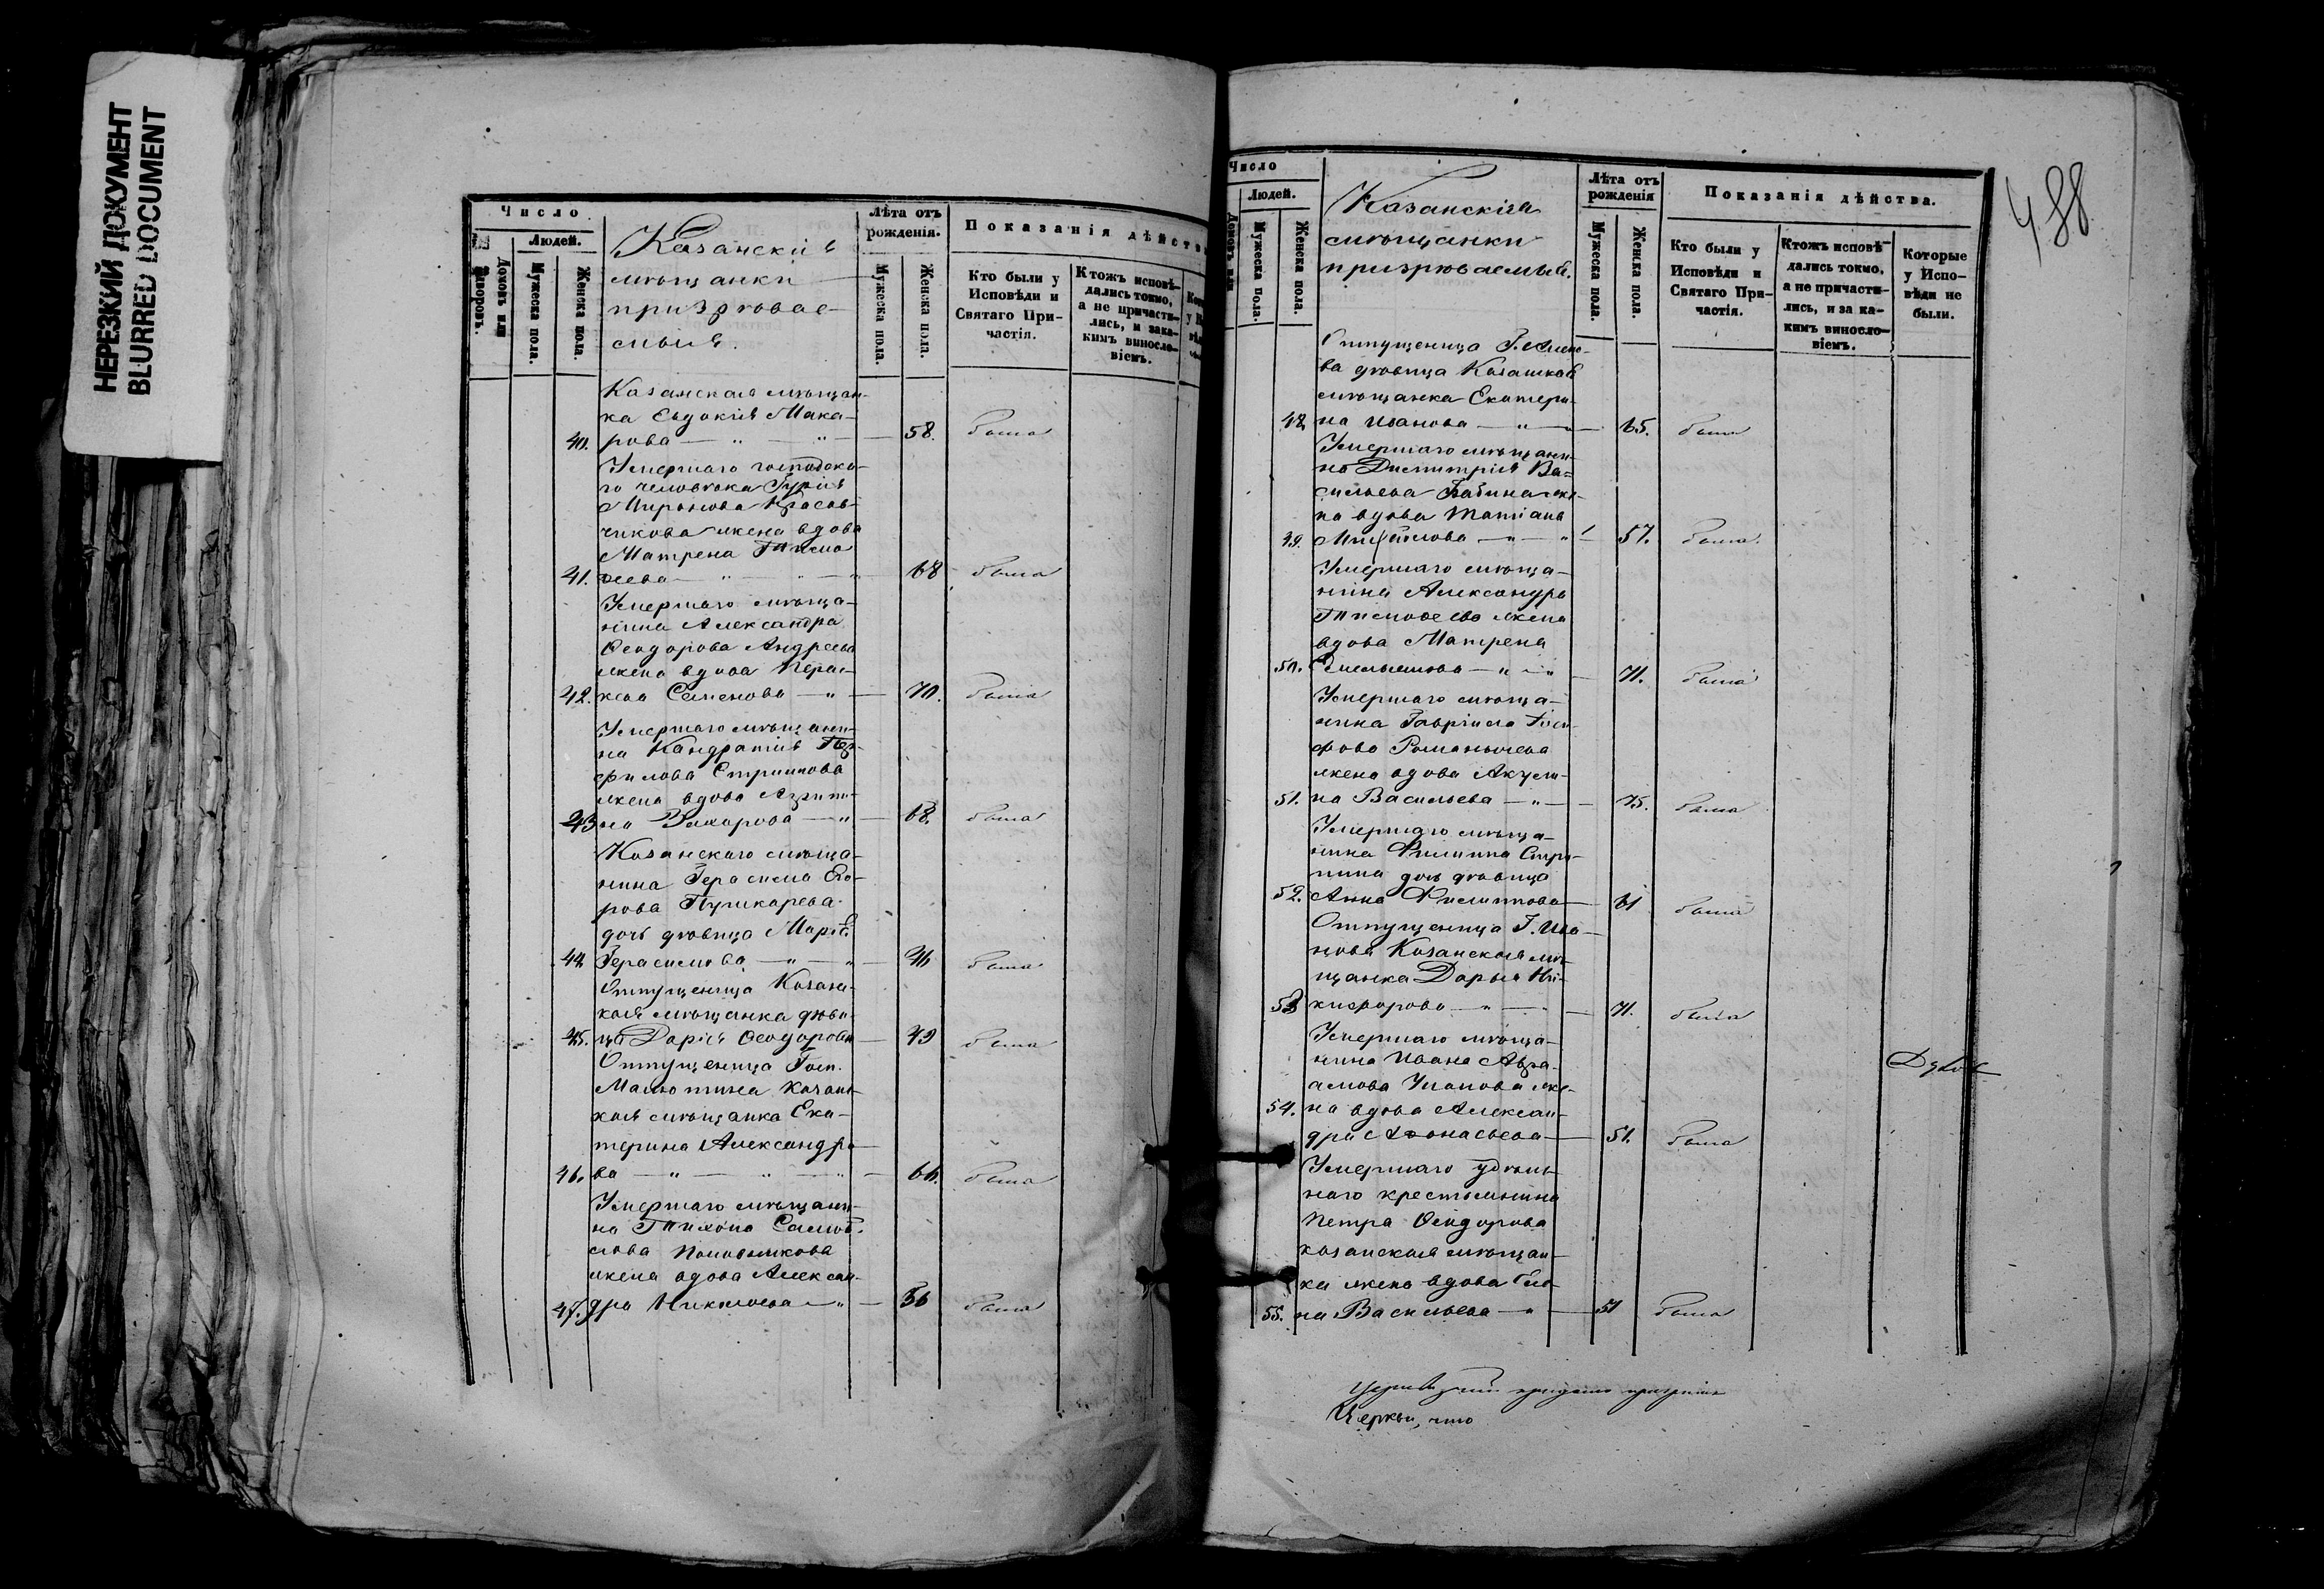 НЕРЕЗКИЙ ДОКУМЕНТ
BLURRED DOCUMENT
Число
Людей.
Домовъ или дворовъ.
Мужеска пола.
Женска пола.
Казанскія
мѣщанки
призрѣвае-
мыя.
Лѣта отъ рожденія.
Мужеска пола.
Женска пола.
Показанія дѣйств
Кто были у
Исповѣди и
Святаго При-
частія.
Ктожъ исповѣ-
дались токмо,
а не причасти-
лись, и зака-
кимъ винословіемъ.
Казанская мѣщан-
ка Евдокія Мака-
40. рова — " — " — 58. была
Умершаго господска-
го человѣка Гурія
Миронова Красав-
чикова жена вдова
Матрена Тимо
41. ѳеева — " — " — " 68 была
Умершаго мѣща-
нина Александра
Ѳеодорова Андреева
жена вдова Парас-
42. кева Семенова — " — 70. была
Умершаго мѣщани-
на Кандратія
филова
жена вдова Агрипи-
43 на Захарова — " — 68. была
Казанскаго мѣща-
нина Герасима Его-
рова Пушкарева
дочь дѣвица Марія
44 Герасимова — " — " — 46 была
Отпущеница Казанс-
кая мѣщанка дѣви-
45. ца Дарія Ѳеодорова — 49 была
Отпущеница Госп.
Малютина Казанс-
кая мѣщанка Ека-
терина Александро-
46. ва — " — " — " — 66. была
Умершаго мѣщани-
на Тихона Самой-
лова
жена вдова Алексан-
47. дра — " — 56 была
488
Число
Людей.
Мужеска пола.
Женска пола.
Казанскія
мѣщанки
призрѣваемыя.
Лѣта отъ
рожденія
Мужеска пола.
Женска пола.
Показанія дѣйства.
Кто были у
Исповѣди и
Святаго При-
частія.
Ктожъ исповѣ-
дались токмо,
а не причасти-
лись, и за ка-
кимъ виносло-
віемъ.
Которые
у Испо-
вѣди не
были.
Отпущеница Г.
ва дѣвица Казанская
мѣщанка Екатери-
48 на Иванова — " — 65. была
Умершаго мѣщани-
на Димитрія Ва-
сильева Бабина же-
на вдова Татіана
49. Михайлова — " — " 57. была
Умершаго мѣща-
нина Александра
Тимоѳеева жена
вдова Матрена
50. Емельянова — " — " 71. была
Умершаго мѣща-
нина Гавріила Іоси-
фова Романычева
жена вдова Акули-
51. на Васильева — " — 75. была
Умершаго мѣща-
нина Филиппа
дочь дѣвица
52. Анна Филиппова — 61 была
Отпущеница Г. Ива-
нова Казанская мѣ-
щанка Дарья Ни-
53 кифорова — " — 71. была
Умершаго мѣща-
нина Ивана Авра-
амова же-
54. на вдова Алексан-
дра Аѳонасьева — 51. была
Умершаго удѣль-
наго крестьянина
Петра Ѳеодорова
казанская мѣщан-
ка жена вдова Еле-
55. на Васильева — " — 51 была
Церкви, что